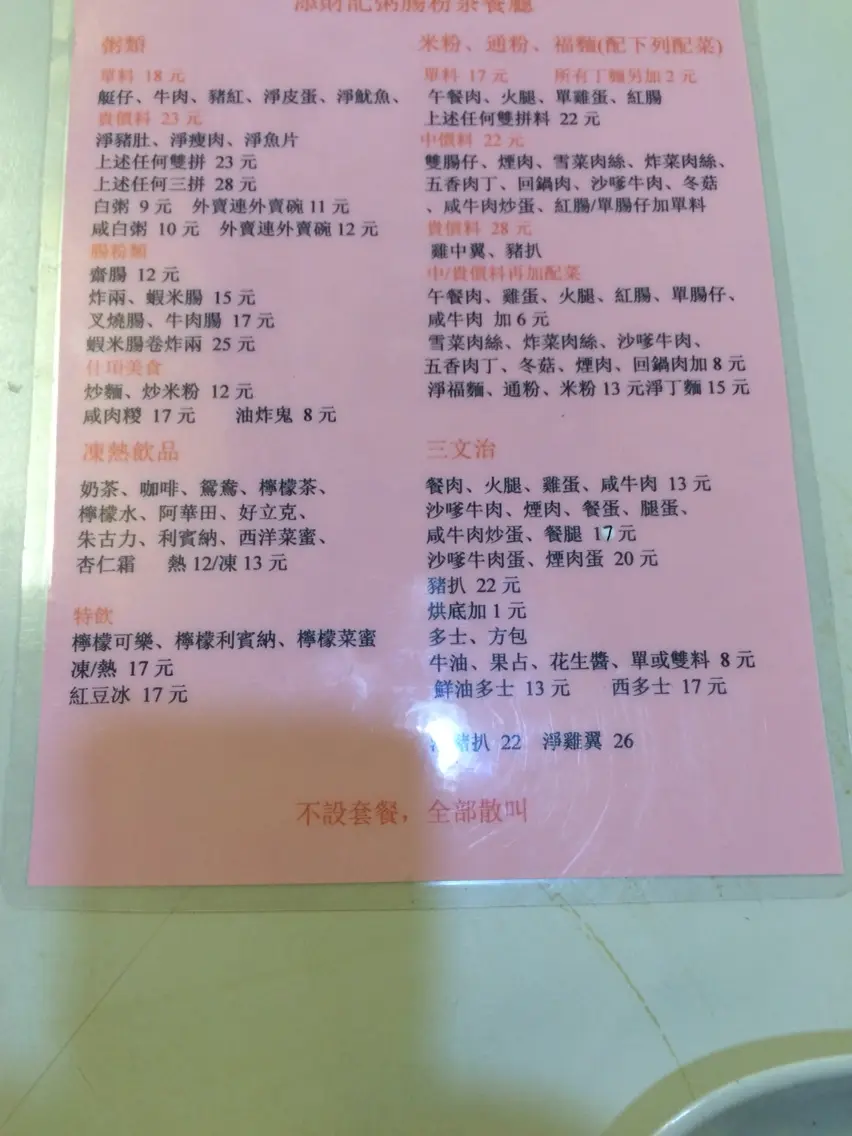 添財記粥腸粉茶餐廳
粥類
單料 18 元
艇仔、牛肉、豬紅、淨皮蛋、淨魷魚、
貴價料 23 元
淨豬肚、淨瘦肉、淨魚片
上述任何雙拼 23 元
上述任何三拼 28 元
白粥 9 元 外賣連外賣碗 11 元
咸白粥 10 元 外賣連外賣碗 12 元
腸粉類
齋腸 12 元
炸兩、蝦米腸 15 元
叉燒腸、牛肉腸 17 元
蝦米腸卷炸兩 25 元
什項美食
炒麵、炒米粉 12 元
咸肉糭 17 元 油炸鬼 8 元
凍熱飲品
奶茶、咖啡、鴛鴦、檸檬茶、
檸檬水、阿華田、好立克、
朱古力、利賓納、西洋菜蜜、
杏仁霜 熱 12/凍 13 元
特飲
檸檬可樂、檸檬利賓納、檸檬菜蜜
凍/熱 17 元
紅豆冰 17 元
米粉、通粉、福麵(配下列配菜)
單料 17 元 所有丁麵另加 2 元
午餐肉、火腿、單雞蛋、紅腸
上述任何雙拼料 22 元
中價料 22 元
雙腸仔、煙肉、雪菜肉絲、炸菜肉絲、
五香肉丁、回鍋肉、沙嗲牛肉、冬菇
、咸牛肉炒蛋、紅腸/單腸仔加單料
貴價料 28 元
雞中翼、豬扒
中/貴價料再加配菜
午餐肉、雞蛋、火腿、紅腸、單腸仔、
咸牛肉 加 6 元
雪菜肉絲、炸菜肉絲、沙嗲牛肉、
五香肉丁、冬菇、煙肉、回鍋肉加 8 元
淨福麵、通粉、米粉 13 元淨丁麵 15 元
三文治
餐肉、火腿、雞蛋、咸牛肉 13 元
沙嗲牛肉、煙肉、餐蛋、腿蛋、
咸牛肉炒蛋、餐腿 17 元
沙嗲牛肉蛋、煙肉蛋 20 元
豬扒 22 元
烘底加 1 元
多士、方包
牛油、果占、花生醬、單或雙料 8 元
鮮油多士 13 元 西多士 17 元
豬扒 22 淨雞翼 26
不設套餐，全部散叫